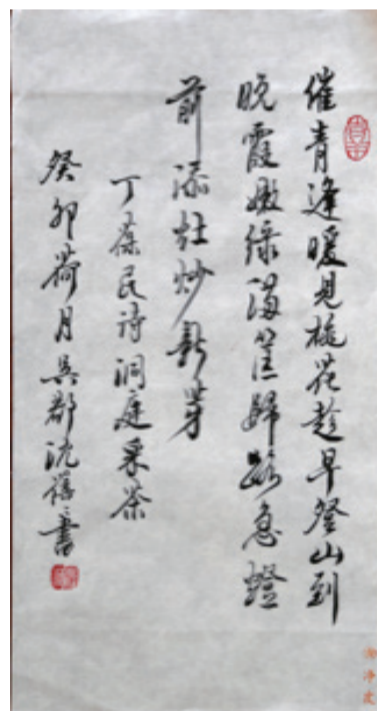 催青逢暖見桃花趁早登山到
晚霞嫩綠滿筐歸路急燈
前添灶炒新芽
丁葆民诗洞庭采茶
癸卯荷月吳郡沈禧書